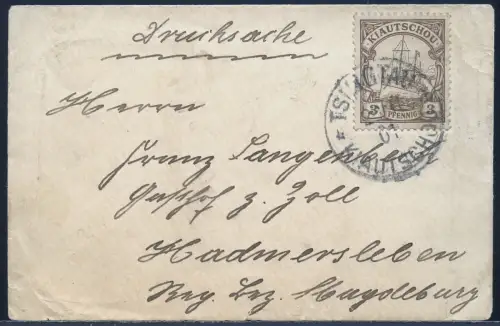 Drucksache
KIAUTSCHOU
3 PFENNIG 3
TSINGTAU
01
* KIAUTSCHOU
Herrn
Franz Langenberg
Gasthof z. Zoll
Hadmersleben
Reg. Bez. Magdeburg